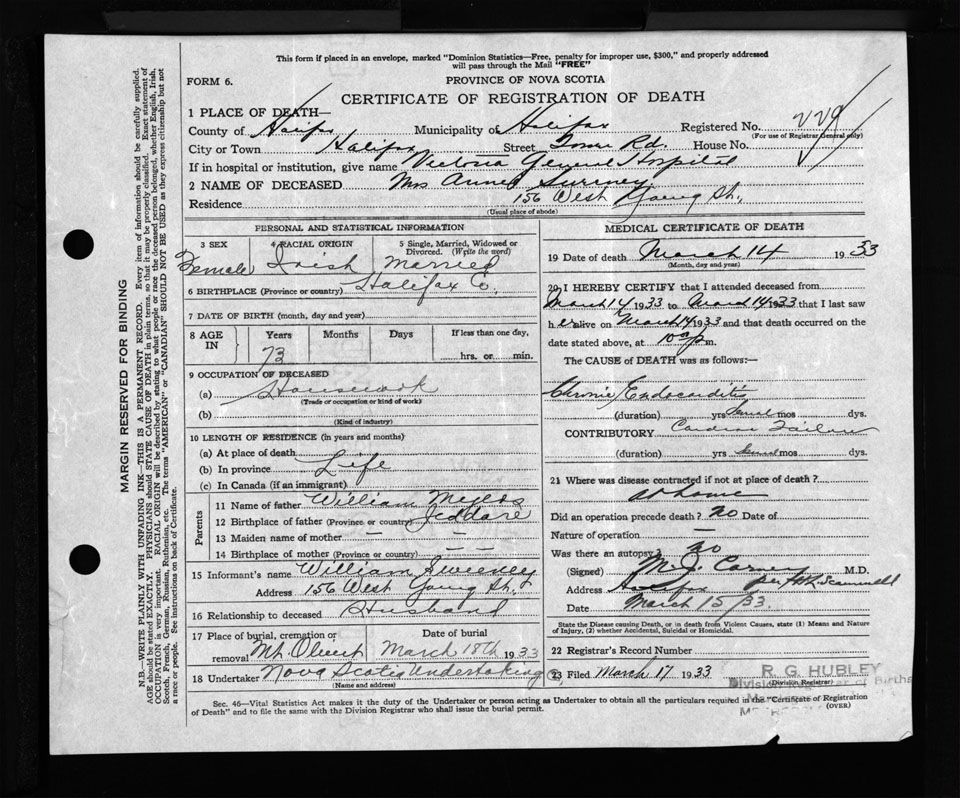 This form if placed in an envelope, marked "Dominion Statistics—Free, penalty for improper use, $300," and properly addressed
will pass through the Mail "FREE"
FORM 6.
PROVINCE OF NOVA SCOTIA
CERTIFICATE OF REGISTRATION OF DEATH
1 PLACE OF DEATH—
County of Halifax Municipality of Halifax Registered No. 229
(For use of Registrar General only)
City or Town Halifax Street Tower Rd. House No.
If in hospital or institution, give name Victoria General Hospital
2 NAME OF DECEASED Mrs Annie
Residence 156 West Young St.,
(Usual place of abode)
PERSONAL AND STATISTICAL INFORMATION
3 SEX 4 RACIAL ORIGIN 5 Single, Married, Widowed or Divorced. (Write the word)
Female Irish Married
6 BIRTHPLACE (Province or country) Halifax Co.
7 DATE OF BIRTH (month, day and year)
8 AGE IN Years Months Days If less than one day,
73 hrs. or min.
9 OCCUPATION OF DECEASED
(a) Housework
(Trade or occupation or kind of work)
(b)
(Kind of industry)
10 LENGTH OF RESIDENCE (in years and months)
(a) At place of death
(b) In province Life
(c) In Canada (if an immigrant)
Parents
11 Name of father William
12 Birthplace of father (Province or country) Jeddore
13 Maiden name of mother —
14 Birthplace of mother (Province or country) — —
15 Informant's name William Sweeney
Address 156 West Young St.
16 Relationship to deceased Husband
17 Place of burial, cremation or removal Mt. Olivet
Date of burial March 18th 1933
18 Undertaker Nova Scotia Undertaking Co.
(Name and address)
MEDICAL CERTIFICATE OF DEATH
19 Date of death March 14 1933
(Month, day and year)
20 I HEREBY CERTIFY that I attended deceased from
March 14 1933 to March 14 1933 that I last saw
h er alive on March 14 1933 and that death occurred on the
date stated above, at 10 p m.
The CAUSE of DEATH was as follows:—
Chronic Endocarditis
(duration) yrs several mos dys.
CONTRIBUTORY Cardiac Failure
(duration) yrs several mos dys.
21 Where was disease contracted if not at place of death?
at home
Did an operation precede death? no Date of
Nature of operation —
Was there an autopsy? no
(Signed) M. J. Carney M.D.
Address Halifax per
Date March 15/33.
State the Disease causing Death, or in death from Violent Causes, state (1) Means and Nature
of Injury, (2) whether Accidental, Suicidal or Homicidal.
22 Registrar's Record Number
23 Filed March 17 1933 R. G. HUBLEY
(Division Registrar)
Division Registrar of Births
Sec. 46—Vital Statistics Act makes it the duty of the Undertaker or person acting as Undertaker to obtain all the particulars required in the "Certificate of Registration
of Death" and to file the same with the Division Registrar who shall issue the burial permit.
(OVER)
MARGIN RESERVED FOR BINDING
N.B.—WRITE PLAINLY WITH UNFADING INK—THIS IS A PERMANENT RECORD. Every item of information should be carefully supplied.
AGE should be stated EXACTLY. PHYSICIANS should STATE CAUSE OF DEATH in plain terms, so that it may be properly classified. Exact statement of
OCCUPATION is very important. RACIAL ORIGIN will be described by stating to what people or race the deceased person belonged, whether English, Irish,
Scotch, French, German, Russian, Ruthenian, etc. The terms "AMERICAN" or "CANADIAN" SHOULD NOT BE USED as they express citizenship but not
a race or people. See instructions on back of Certificate.